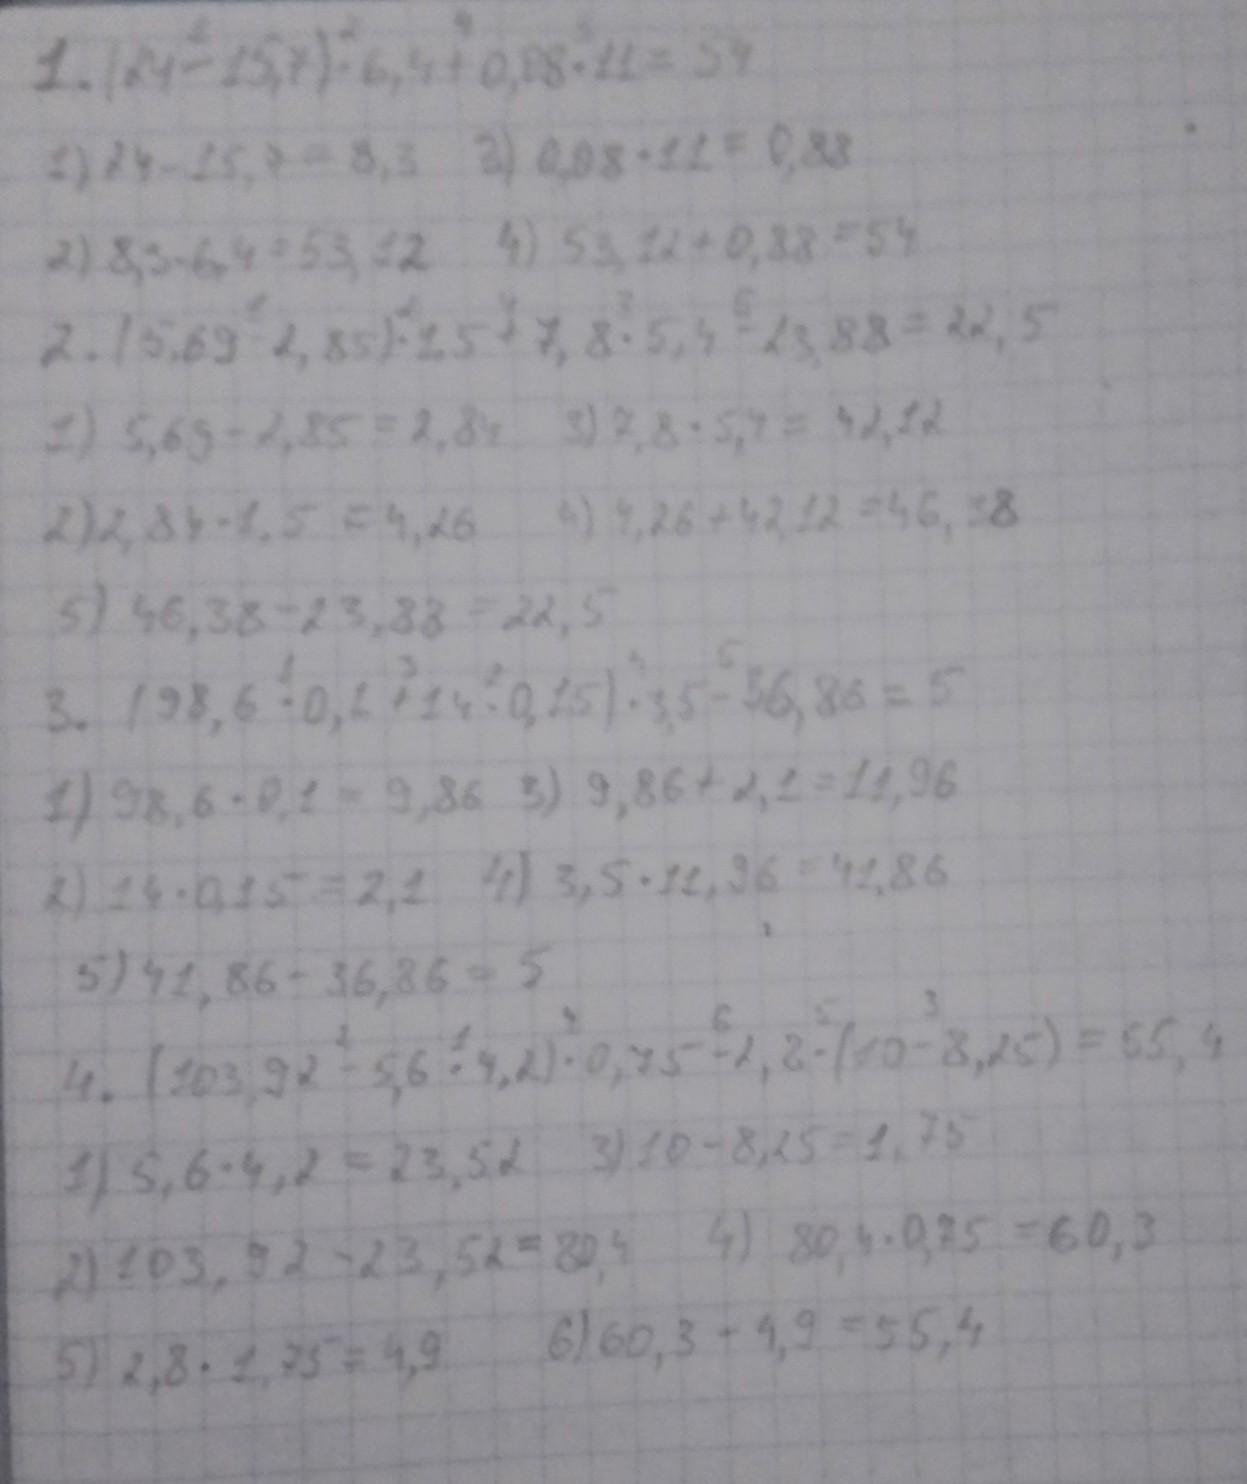 1. (24-15,7)·6,4+0,08·11=54
1) 24-15,7=8,3 3) 0,08·11=0,88
2) 8,3·6,4=53,12 4) 53,12+0,88=54
2. (5,69-2,85)·1,5+7,8·5,4-23,88=22,5
1) 5,69-2,85=2,84 3) 7,8·5,4=42,12
2) 2,84·1,5=4,26 4) 4,26+42,12=46,38
5) 46,38-23,88=22,5
3. (98,6·0,1+14·0,15)·3,5-36,86=5
1) 98,6·0,1=9,86 3) 9,86+2,1=11,96
2) 14·0,15=2,1 4) 3,5·11,96=41,86
5) 41,86-36,86=5
4. (103,92-5,6·4,2)·0,75-2,8·(10-8,25)=55,4
1) 5,6·4,2=23,52 3) 10-8,25=1,75
2) 103,92-23,52=80,4 4) 80,4·0,75=60,3
5) 2,8·1,75=4,9 6) 60,3-4,9=55,4